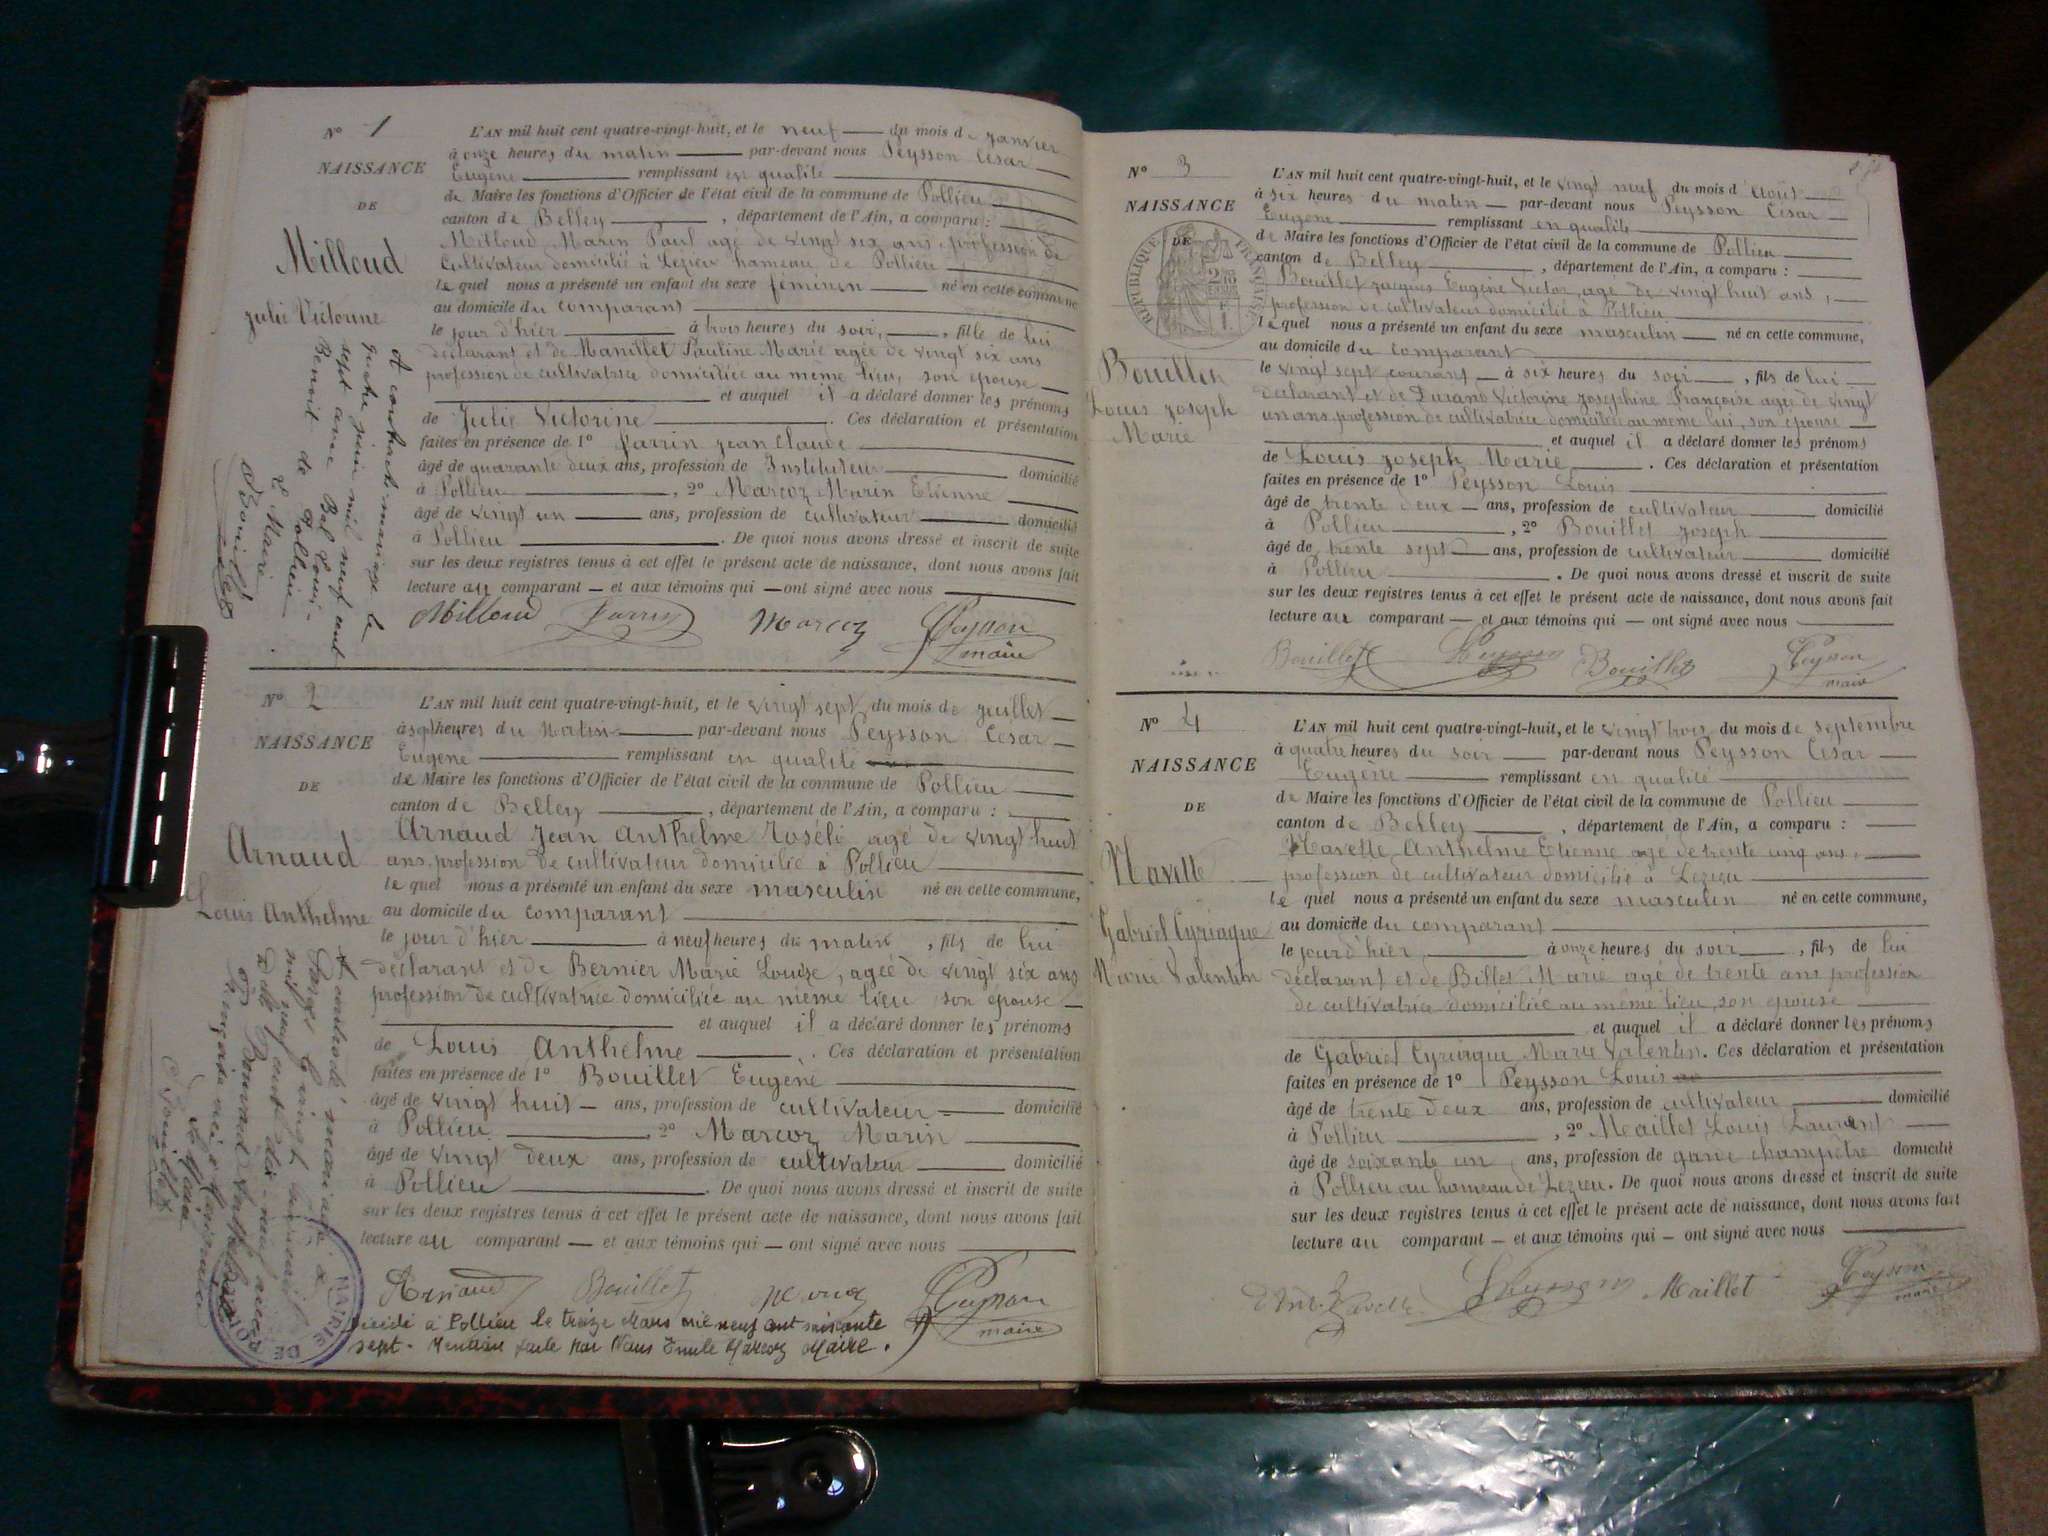 N° 1
NAISSANCE
DE
Milloud
Julie Victorine
L'AN mil huit cent quatre-vingt-huit, et le neuf du mois de janvier
à onze heures du matin par-devant nous Peysson César
Eugène remplissant en qualité
de Maire les fonctions d'Officier de l'état civil de la commune de Pollieu
canton de Belley, département de l'Ain, a comparu :
Milloud Marin Paul agé de vingt six ans, profession de
cultivateur domicilié à Lezieu hameau de Pollieu
lequel nous a présenté un enfant du sexe féminin né en cette commune
au domicile du comparant
le jour d'hier à trois heures du soir, fille de lui
déclarant et de Manillet Pauline Marie agée de vingt six ans
profession de cultivatrice domiciliée au même lieu, son épouse
et auquel il a déclaré donner les prénoms
de Julie Victorine. Ces déclaration et présentation
faites en présence de 1° Parrin Jean Claude
âgé de quarante deux ans, profession de Instituteur domicilié
à Pollieu, 2° Marcoz Marin Etienne
âgé de vingt un ans, profession de cultivateur domicilié
à Pollieu. De quoi nous avons dressé et inscrit de suite
sur les deux registres tenus à cet effet le présent acte de naissance, dont nous avons fait
lecture au comparant et aux témoins qui ont signé avec nous
Milloud Parrin Marcoz Peysson
maire
A contracté mariage le
quatre juin mil neuf cent
sept avec Bal Louis
Benoit de Pollieu
Le Maire
N° 2
NAISSANCE
DE
Arnaud
Louis Anthelme
L'AN mil huit cent quatre-vingt-huit, et le vingt sept du mois de juillet
à sept heures du matin par-devant nous Peysson César
Eugène remplissant en qualité
de Maire les fonctions d'Officier de l'état civil de la commune de Pollieu
canton de Belley, département de l'Ain, a comparu :
Arnaud Jean Anthelme Roséli agé de vingt huit
ans, profession de cultivateur domicilié à Pollieu
lequel nous a présenté un enfant du sexe masculin né en cette commune,
au domicile du comparant
le jour d'hier à neuf heures du matin, fils de lui
déclarant et de Bernier Marie Louise, agée de vingt six ans
profession de cultivatrice domiciliée au même lieu son épouse
et auquel il a déclaré donner les prénoms
de Louis Anthelme. Ces déclaration et présentation
faites en présence de 1° Bouillet Eugène
âgé de vingt huit ans, profession de cultivateur domicilié
à Pollieu, 2° Marcoz Marin
âgé de vingt deux ans, profession de cultivateur domicilié
à Pollieu. De quoi nous avons dressé et inscrit de suite
sur les deux registres tenus à cet effet le présent acte de naissance, dont nous avons fait
lecture au comparant et aux témoins qui ont signé avec nous
Arnaud Bouillet Marcoz Peysson
maire
Décédé à Pollieu le treize Mars mil neuf cent soixante
sept. Mention faite par Nous Emile Marcoz Maire.
A contracté mariage à
mil neuf cent dix-neuf avec
Le Maire
MAIRIE DE POLLIEU
N° 3
NAISSANCE
DE
RÉPUBLIQUE FRANÇAISE
Bouillet
Louis Joseph
Marie
L'AN mil huit cent quatre-vingt-huit, et le vingt neuf du mois d'Août
à six heures du matin par-devant nous Peysson César
Eugène remplissant en qualité
de Maire les fonctions d'Officier de l'état civil de la commune de Pollieu
canton de Belley, département de l'Ain, a comparu :
Bouillet Jacques Eugène Victor, agé de vingt huit ans,
profession de cultivateur domicilié à Pollieu
lequel nous a présenté un enfant du sexe masculin né en cette commune,
au domicile du comparant
le vingt sept courant à six heures du soir, fils de lui
déclarant et de Durand Victorine Joséphine Françoise agée de vingt
un ans, profession de cultivatrice domiciliée au même lieu, son épouse
et auquel il a déclaré donner les prénoms
de Louis Joseph Marie. Ces déclaration et présentation
faites en présence de 1° Peysson Louis
âgé de trente deux ans, profession de cultivateur domicilié
à Pollieu, 2° Bouillet Joseph
âgé de trente sept ans, profession de cultivateur domicilié
à Pollieu. De quoi nous avons dressé et inscrit de suite
sur les deux registres tenus à cet effet le présent acte de naissance, dont nous avons fait
lecture au comparant et aux témoins qui ont signé avec nous
Bouillet LPeysson Bouillet Peysson
maire
N° 4
NAISSANCE
DE
Navette
Gabriel Cyriaque
Marie Valentin
L'AN mil huit cent quatre-vingt-huit, et le vingt trois du mois de septembre
à quatre heures du soir par-devant nous Peysson César
Eugène remplissant en qualité
de Maire les fonctions d'Officier de l'état civil de la commune de Pollieu
canton de Belley, département de l'Ain, a comparu :
Navette Anthelme Etienne agé de trente cinq ans,
profession de cultivateur domicilié à Lezieu
lequel nous a présenté un enfant du sexe masculin né en cette commune,
au domicile du comparant
le jour d'hier à onze heures du soir, fils de lui
déclarant et de Billet Marie agé de trente ans profession
de cultivatrice domiciliée au même lieu, son épouse
et auquel il a déclaré donner les prénoms
de Gabriel Cyriaque Marie Valentin. Ces déclaration et présentation
faites en présence de 1° Peysson Louis
âgé de trente deux ans, profession de cultivateur domicilié
à Pollieu, 2° Maillet Louis Laurent
âgé de soixante un ans, profession de garde champêtre domicilié
à Pollieu au hameau de Lezieu. De quoi nous avons dressé et inscrit de suite
sur les deux registres tenus à cet effet le présent acte de naissance, dont nous avons fait
lecture au comparant et aux témoins qui ont signé avec nous
Navette LPeysson Maillet Peysson
maire